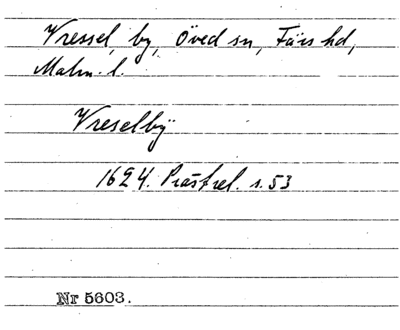 Vressel, by, Öved sn, Färs hd,
Malm. l.
Vreselbÿ
1624. Prästrel. s. 53
Nr 5603.